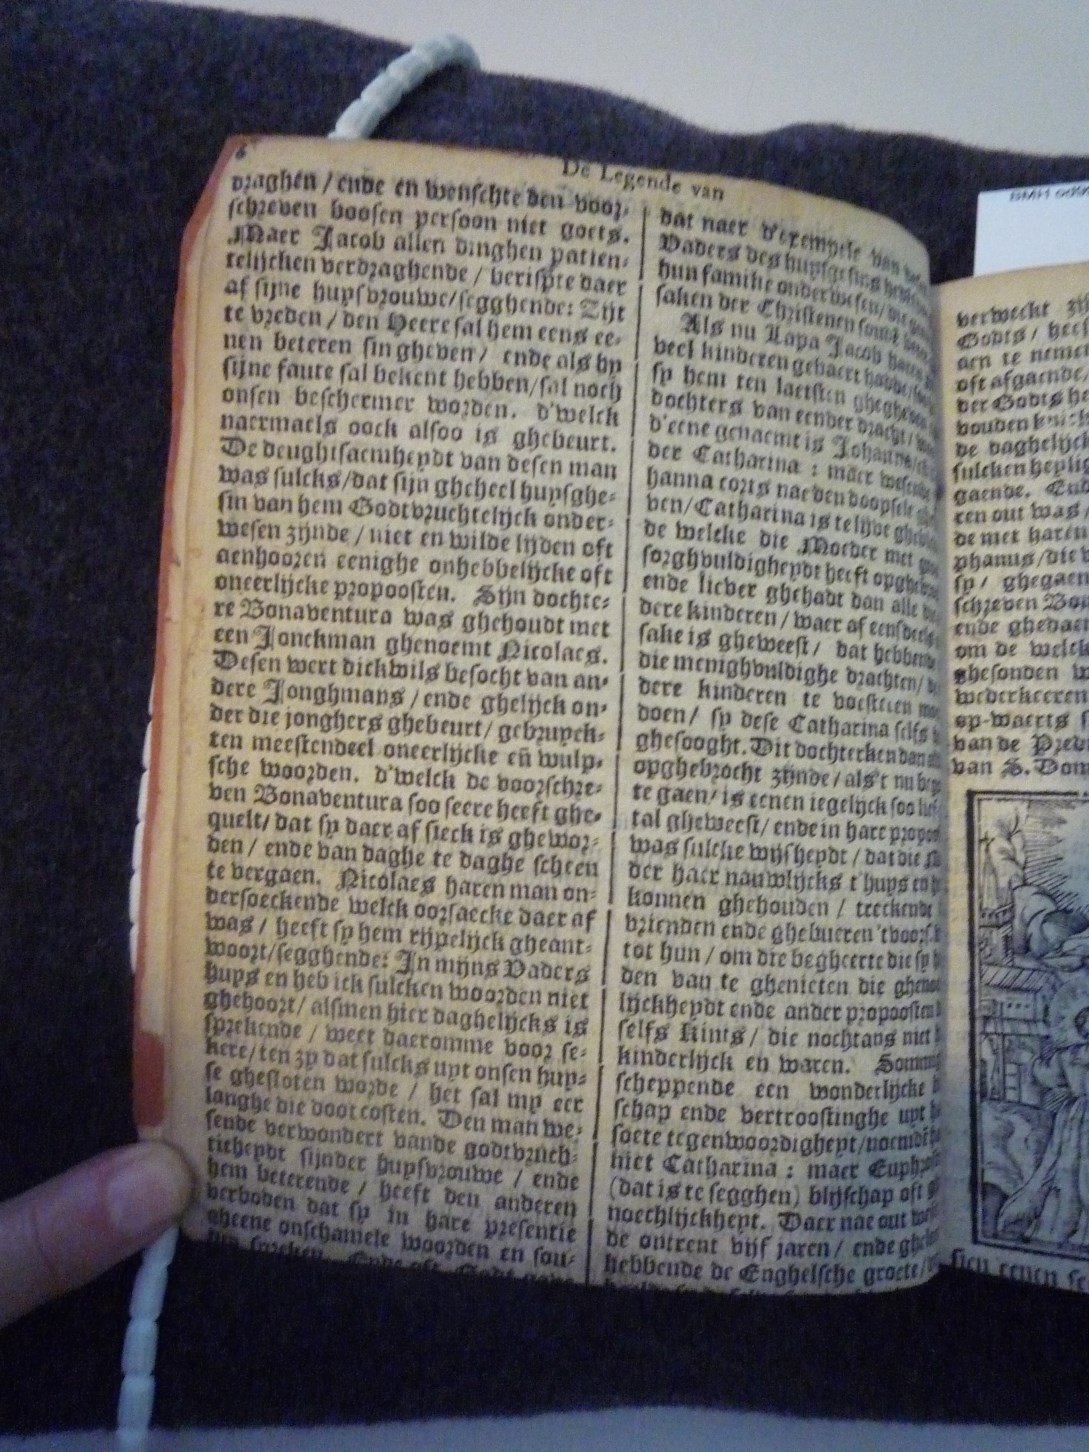 6
De Legende van
draghen / ende en wenschte den voor-
schreven boosen persoon niet goets.
Maer Jacob allen dinghen patien-
telijcken verdraghende / berispte daer
af sijne huysvrouwe/segghende: Zijt
te vreden / den Heere sal hem eens ee-
nen beteren sin gheven / ende als hy
sijne faute sal bekent hebben/sal noch
onsen beschermer worden. d'welck
naermaels oock alsoo is ghebeurt.
De deughtsaemheydt van desen man
was sulcks/dat sijn gheheel huysghe-
sin van hem Godtvruchtelijck onder-
wesen zijnde / niet en wilde lijden oft
aenhooren eenighe onhebbelijcke oft
oneerlijcke propoosten. Sijn dochte-
re Bonaventura was ghehoudt met
een Jonckman ghenoemt Nicolaes.
Desen wert dickwils besocht van an-
dere Jonghmans / ende ghelijck on-
der die jonghers ghebeurt / gebruyck-
ten meestendeel oneerlijcke eñ wulp-
sche woorden. d'welck de voorschre-
ven Bonaventura soo seere heeft ghe-
quelt/ dat sy daer af sieck is ghewor-
den / ende van daghe te daghe scheen
te vergaen. Nicolaes haren man on-
dersoeckende welck oorsaecke daer af
was / heeft sy hem rijpelijck gheant-
woort/segghende: In mijns Vaders
huys en heb ick sulcken woorden niet
ghehoort/ alsmen hier daghelijcks is
sprekende / weet daeromme voor se-
kere/ten zy dat sulcks uyt onsen huy-
se ghesloten worde / het sal my eer
langhe die doot costen. Den man we-
sende verwondert vande godtvruch-
ticheydt sijnder huysvrouwe / ende
hem beterende / heeft den anderen
verboden dat sy in hare presentie
gheene onschamele woorden en sou-
spreken. Ende
dat naer d'exempele van
Vaders des huysgesins
hun familie onderwesen/
saken der Christenen
Als nu Lapa Jacob
veel kinderen gebaert hadde/
sy hem ten laetsten
dochters van eender dracht /
d'eene genaemt is Johanna/
der Catharina : maer
hanna corts naeden doopsele
ven/Catharina is te lijve
de welcke die Moeder met
sorghvuldigheydt heeft
ende liever ghehadt dan alle
dere kinderen / waer af
sake is gheweest / dat hebbende
die menighvuldighe drachten/
dere kinderen te voesteren
doen/ sy dese Catharina selfs
ghesooght. Dit dochterken dan
opghebrocht zijnde / als't nu
te gaen/ is eenen iegelijck soo
tal gheweest/ ende in hare
was sulcke wijsheydt / dat die
der haer nauwlijcks t'huys en
konnen ghehouden / treckende
vrienden ende ghebueren
tot hun / om die begheerte die sy
den van te ghenieten die
lijckheydt ende ander propoosten
selfs Kints / die nochtans niet
kinderlijck en waren.
scheppende een wonderlijcke
schap ende vertroostinghe uyt
soete tegenwoordigheyt/
niet Catharina : maer
(dat is te segghen) blijschap oft
noechlijckheyt. Daer nae out
de ontrent vijf jaren / ende
hebbende de Enghelsche groete/
verweckt
Godts /
aen te
oft afgaende,
der Godts
vouden
de daghelijck
sulcken heylig
gaende.
ren out was /
de met haren
phanus/die
sy / ghegaen
schreven
ende ghedaen
om de welck
ghesonden
wederkeeren
op-waerts
van de
van S. Dom
sien eenen